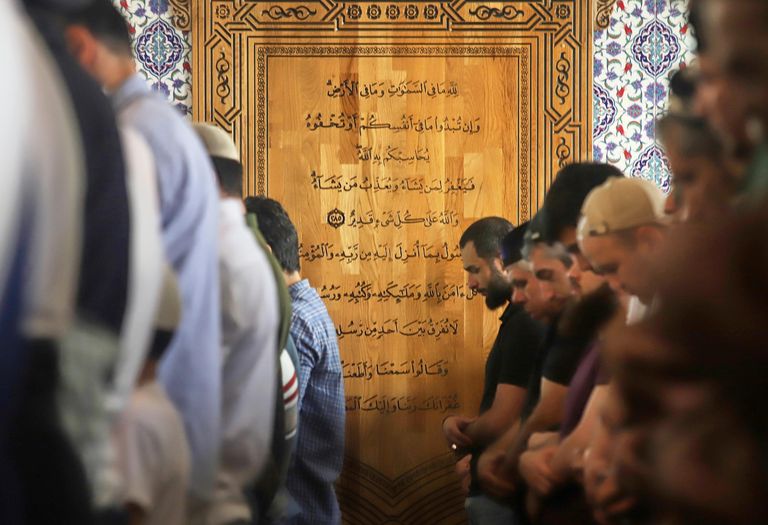 لِلَّهِ مَا فِى السَّمٰوَاتِ وَمَا فِى الْاَرْضِ
وَاِنْ تُبْدُوا مَا فِى اَنْفُسِكُمْ اَوْ تُخْفُوهُ
يُحَاسِبْكُمْ بِهِ اللّٰهُ
فَيَغْفِرُ لِمَنْ يَشَاءُ وَيُعَذِّبُ مَنْ يَشَاءُ
وَاللّٰهُ عَلٰى كُلِّ شَىْءٍ قَدِيرٌ
سُولُ بِمَا اُنْزِلَ اِلَيْهِ مِنْ رَبِّهِ وَالْمُؤْمِنُ
كُلٌّ اٰمَنَ بِاللّٰهِ وَمَلٰئِكَتِهِ وَكُتُبِهِ وَرُسُ
لَا نُفَرِّقُ بَيْنَ اَحَدٍ مِنْ رُسُلِهِ
وَقَالُوا سَمِعْنَا وَاَطَعْنَا
غُفْرَانَكَ رَبَّنَا وَاِلَيْكَ الْمَ